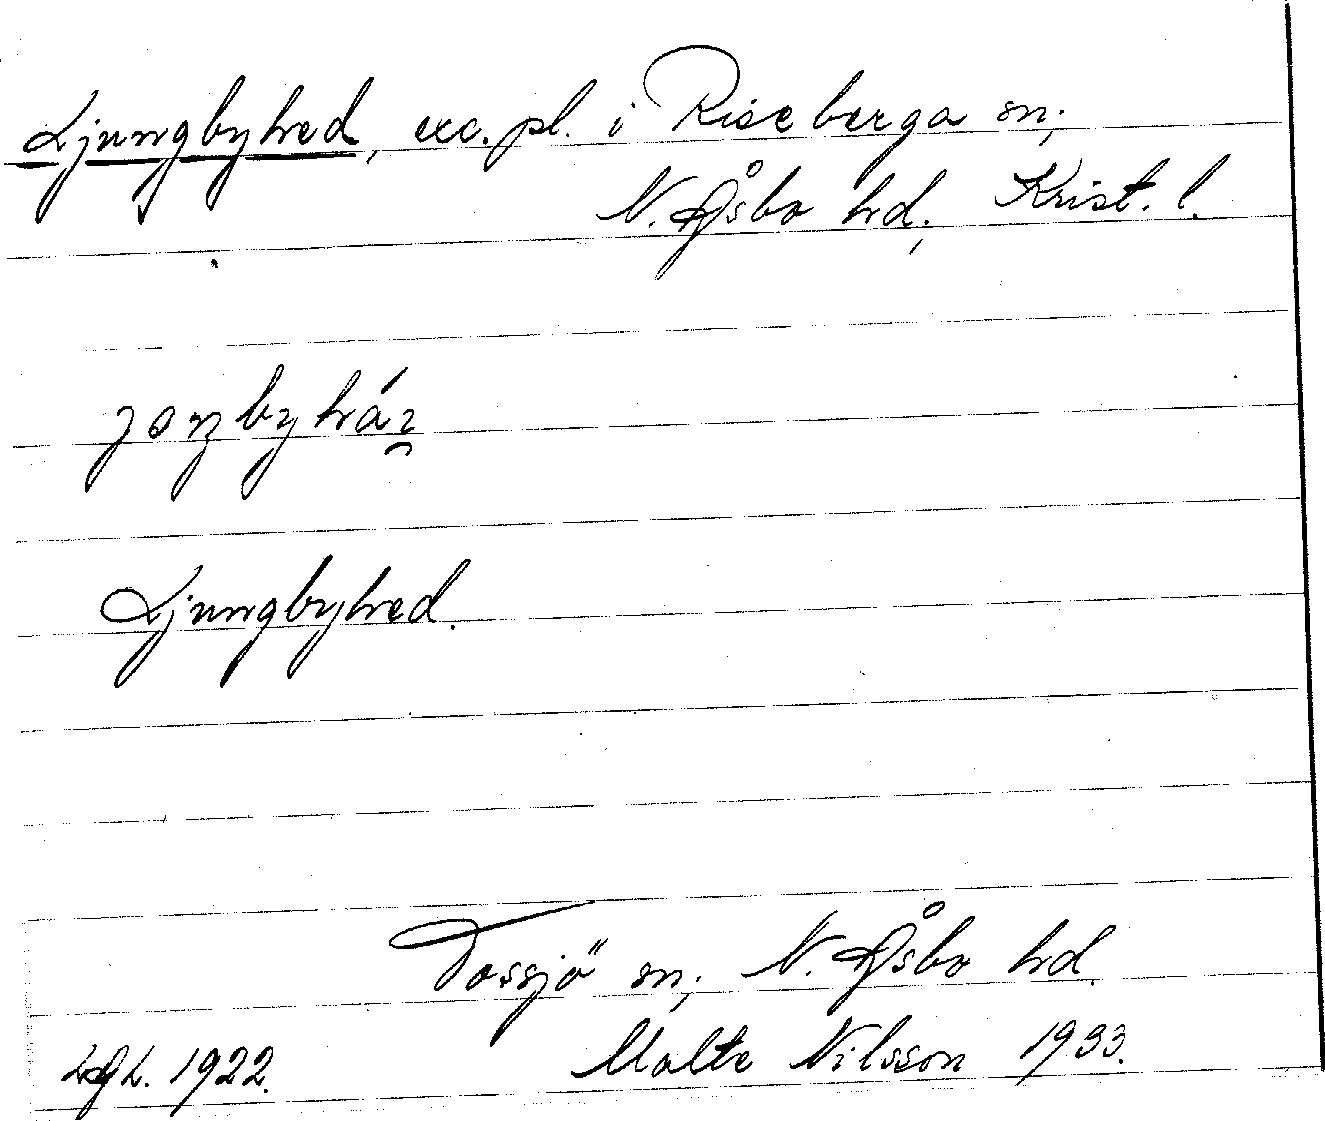 Ljungbyhed, exc. pl. i Riseberga sn;
N. Åsbo hd; Krist. l.
Ljungbyhed.
Tossjö sn; N. Åsbo hd.
1922. Malte Nilsson 1933.